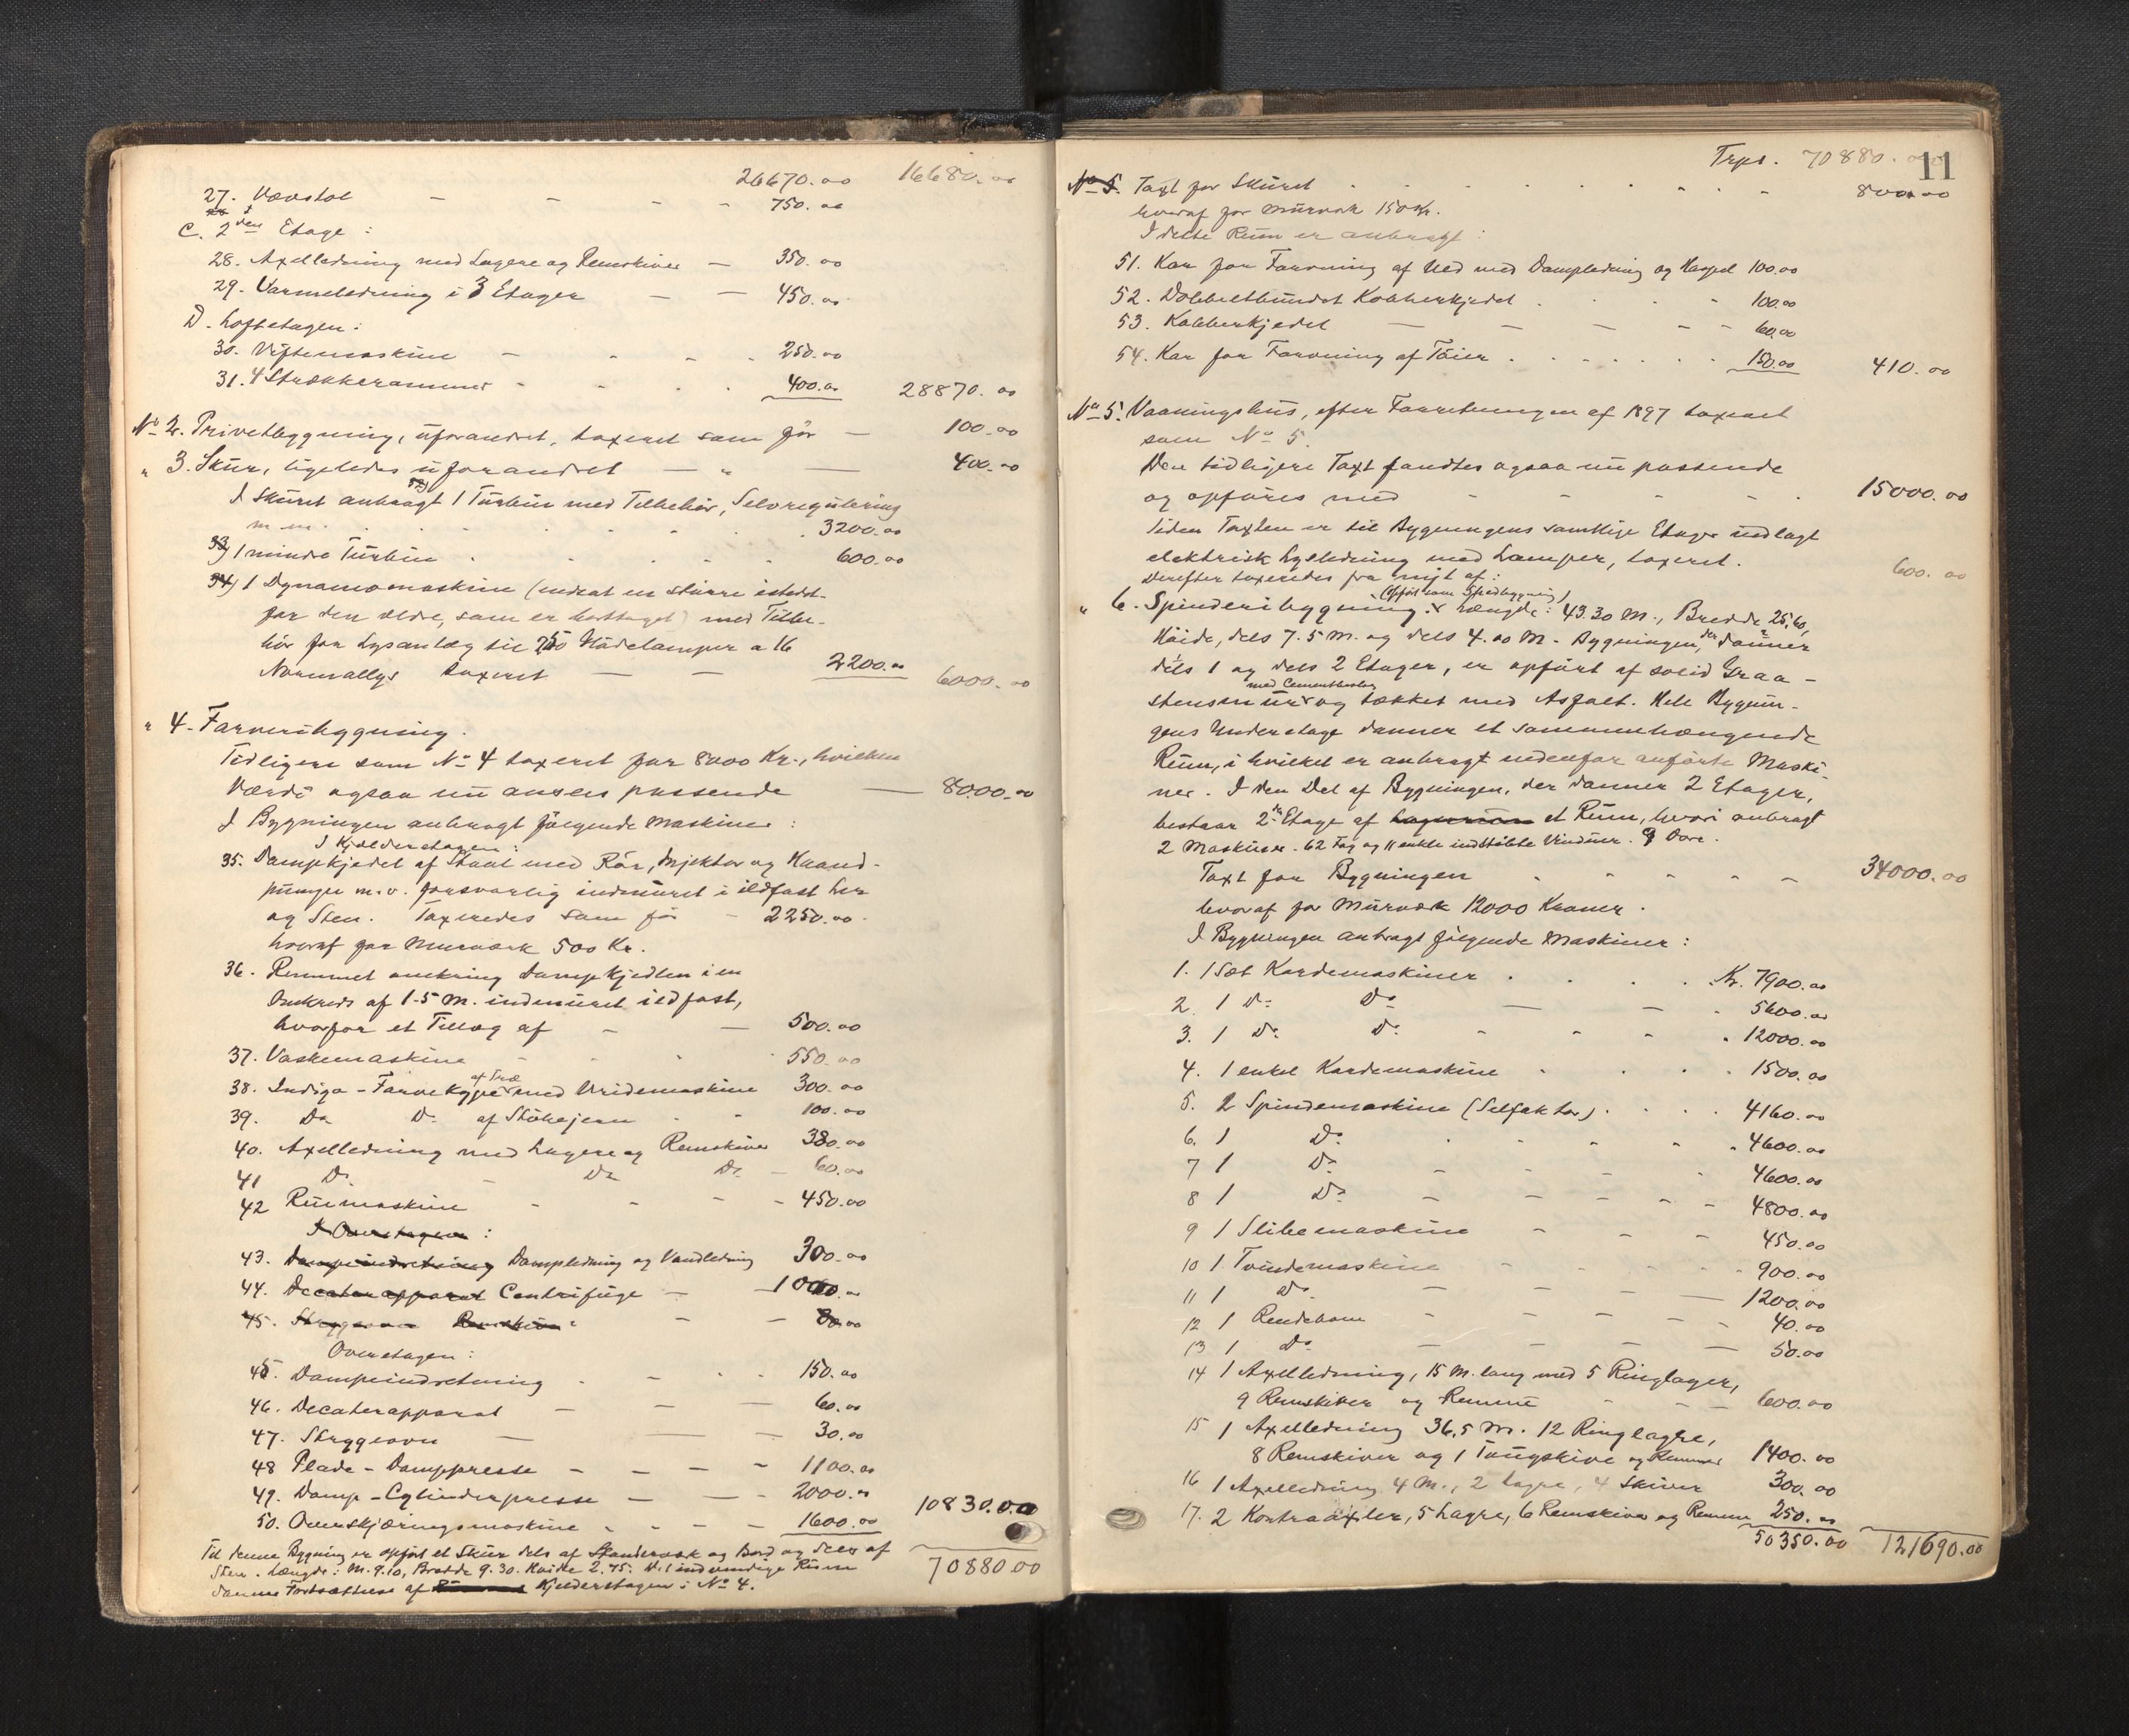 26670.00 16680.00
27. Vævstol - - - - 750.00
C. 2den Etage:
28. Axelledning med Lagere og Remskiver - 350.00
29. Varmeledning i 3 Etager - - 450.00
D. Loftetagen:
30. Viftemaskine - - - - 250.00
31. 4 Strækkerammer - - - - 400.00 28870.00
No 2. Privetbygning, uforandret, taxeret som før - 100.00
" 3. Skur, ligeledes uforandret - " - 400.00
I Skuret anbragt 32) 1 Turbin med Tilbehør, Selvregulering
m.m. . . . . . . 3200.00
33) 1 mindre Turbin . . . . 600.00
34) 1 Dynamomaskine (indsat en større istedet-
for den ældre, som er borttaget) med Tilbe-
hør for Lysanlæg til 250 Glødelamper a 16
Normallys taxeret - - 2200.00 6000.00
" 4. Farveribygning.
Tidligere som No 4 taxeret for 8000 Kr., hvilken
Værdi ogsaa nu ansees passende - 8000.00
I Bygningen anbragt følgende Maskiner:
I Kjelderetagen:
35. Dampkjedel af Staal med Rør, Injektor og Haand-
pumpe m.v. forsvarlig indmuret i ildfast Ler
og Sten. Taxeredes som før - 2250.00
hvoraf for Murværk 500 Kr.
36. Rummet omkring Dampkjedlen i en
Omkreds af 1.5 M. indmuret ildfast,
hvorfor et Tillæg af - - 500.00
37. Vaskemaskine - - - 550.00
38. Indigo-Farvekype af Træ med Vridemaskine 300.00
39. Do Do af Støbejern - - 100.00
40. Axelledning med Lagere og Remskiver 380.00
41 Do - Do Do - 60.00
42 Ruemaskine - - - - 450.00
I Overetagen:
43. Dampindretning Dampledning og Vandledning 300.00
44. Decaterapparat Centrifuge - - 1000.00
45. Skyggeovn - - 80.00
Overetagen:
45. Dampindretning . - - - 150.00
46. Decaterapparat - - - 60.00
47. Skyggeovn - - - 30.00
48 Plade-Damppresse - - - - 1100.00
49. Damp-Cylinderpresse - - - 2000.00 10830.00
50. Overskjæringsmaskine - - - - 1600.00
Til denne Bygning er opført et Skur dels af Standerværk og Bord og dels af
Sten. Længde: M. 9.10, Bredde 9.30. Høide 2.75. Det indvendige Rum
danner Fortsættelse af Kjelderetagen i No 4.
70880.00
11
Trpt. 70880.00
No 5. Taxt for Skuret . . . . . . 800.00
hvoraf for Murværk 150 Kr.
I dette Rum er anbragt:
51. Kar for Farvning af Uld med Dampledning og Haspel 100.00
52. Dobbeltbundet Kobberkjedel . . . - 100.00
53. Kobberkjedel - - - - - 60.00
54. Kar for Farvning af Tøier . . . . . . 150.00 410.00
No 5. Vaaningshus, efter Forretningen af 1897 taxeret
som No 5.
Den tidligere Taxt fandtes ogsaa nu passende
og opføres med - - - - . 15000.00
Siden Taxten er til Bygningens samtlige Etager indlagt
elektrisk Lysledning med Lamper, taxeret. 600.00
Derefter taxeredes fra nyt af:
" 6. Spinderibygning (opført som Shedbygning). Længde: 43.30 M., Bredde 25,60,
Høide, dels 7.5 M. og dels 4.00 M. Bygningen, der danner
dels 1 og dels 2 Etager, er opført af solid Graa-
stensmur med Cementbeslag og tækket med Asfalt. Hele Bygnin-
gens Underetage danner et sammenhængende
Rum, i hvilket er anbragt nedenfor anførte Maski-
ner. I den Del af Bygningen, der danner 2 Etager,
bestaar 2den Etage af et Rum, hvori anbragt
2 Maskiner. 62 Fag og 11 enkle indstøbte Vinduer. 9 Døre.
Taxt for Bygningen - - - - - 34000.00
hvoraf for Murværk 12000 Kroner.
I Bygningen anbragt følgende Maskiner:
1. 1 Sæt Kardemaskiner . . . . Kr. 7900.00
2. 1 Do Do - - - 5600.00
3. 1 Do Do - - - - 12000.00
4. 1 enkel Kardemaskine . . . . 1500.00
5. 2 Spindemaskine (Selfaktor) . . . . 4160.00
6. 1 Do . - - - - 4600.00
7 1 Do - - - - 4600.00
8 1 Do - - - - 4800.00
9 1 Slibemaskine - - - 450.00
10 1 Tvindemaskine - - - - 900.00
11 1 Do - - - - 1200.00
12 1 Rendebom - - - - - 40.00
13 1 Do - - - - 50.00
14 1 Axelledning, 15 M. lang med 5 Ringlager,
9 Remskiver og Remme - - - 600.00
15 1 Axelledning 36,5 M. 12 Ringlagre,
8 Remskiver og 1 Tougskive og Remmer 1400.00
16 1 Axelledning 4 M., 2 Lagre, 4 Skiver 300.00
17. 2 Kontraaxler, 5 Lagre, 6 Remskiver og Remme 250.00
50350.00 121690.00